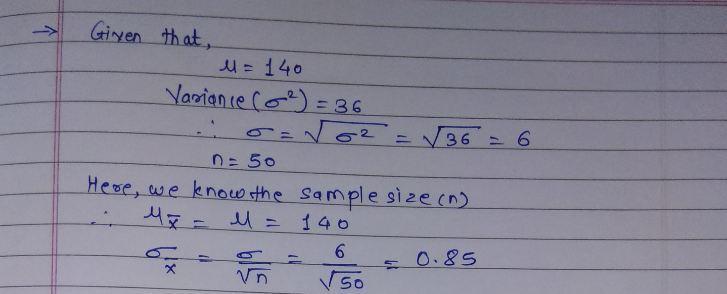 → Given that,
μ = 140
Variance (σ²) = 36
∴ σ = √σ² = √36 = 6
n = 50
Here, we know the sample size (n)
∴ μx̄ = μ = 140
σx̄ = σ/√n = 6/√50 = 0.85